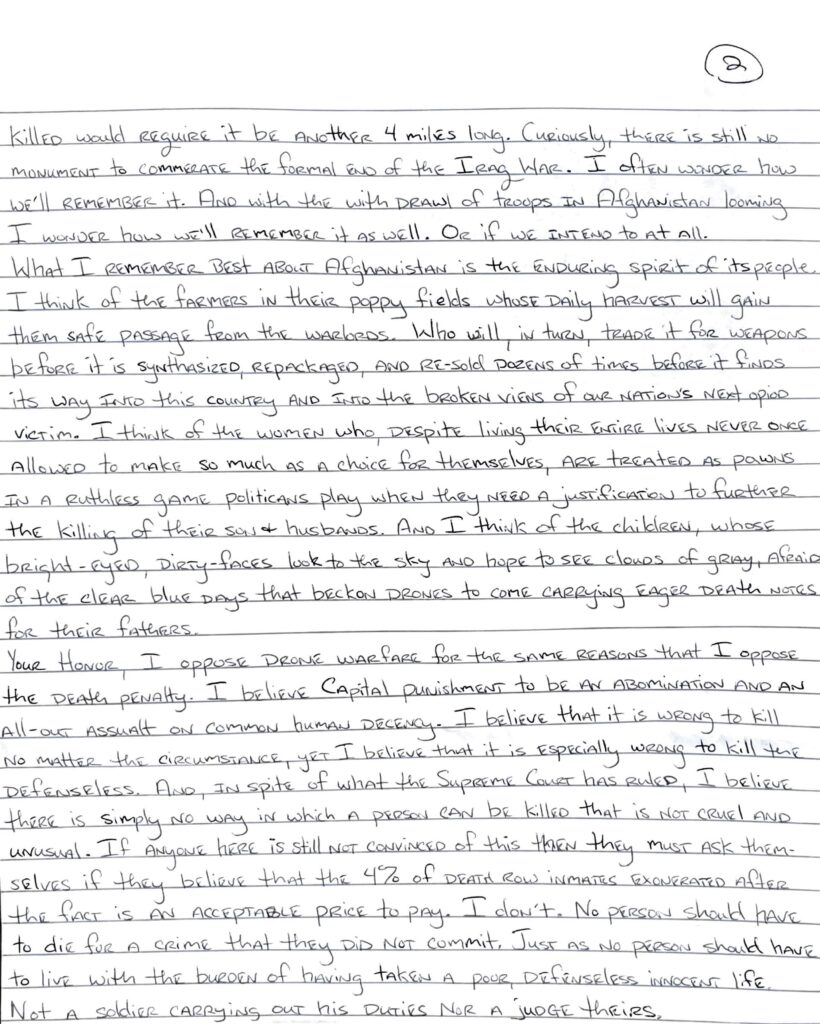 2
Killed would require it be another 4 miles long. Curiously, there is still no
monument to commerate the formal end of the Iraq War. I often wonder how
we'll remember it. And with the with drawl of troops in Afghanistan looming
I wonder how we'll remember it as well. Or if we intend to at all.
What I remember best about Afghanistan is the enduring spirit of its people.
I think of the farmers in their poppy fields whose daily harvest will gain
them safe passage from the warlords. Who will, in turn, trade it for weapons
before it is synthasized, repackaged, and re-sold dozens of times before it finds
its way into this country and into the broken viens of our nation's next opiod
victim. I think of the women who, despite living their entire lives never once
allowed to make so much as a choice for themselves, are treated as pawns
in a ruthless game politicans play when they need a justification to further
the killing of their son & husbands. And I think of the children, whose
bright-eyed, dirty-faces look to the sky and hope to see clouds of gray, afraid
of the clear blue days that beckon drones to come carrying eager death notes
for their fathers.
Your Honor, I oppose drone warfare for the same reasons that I oppose
the death penalty. I believe Capital punishment to be an abomination and an
all-out assualt on common human decency. I believe that it is wrong to kill
no matter the circumstance, yet I believe that it is especially wrong to kill the
defenseless. And, in spite of what the Supreme Court has ruled, I believe
there is simply no way in which a person can be killed that is not cruel and
unusual. If anyone here is still not convinced of this then they must ask them-
selves if they believe that the 4% of death row inmates exonerated after
the fact is an acceptable price to pay. I don't. No person should have
to die for a crime that they did not commit. Just as no person should have
to live with the burden of having taken a poor, defenseless innocent life.
Not a soldier carrying out his duties nor a judge theirs.